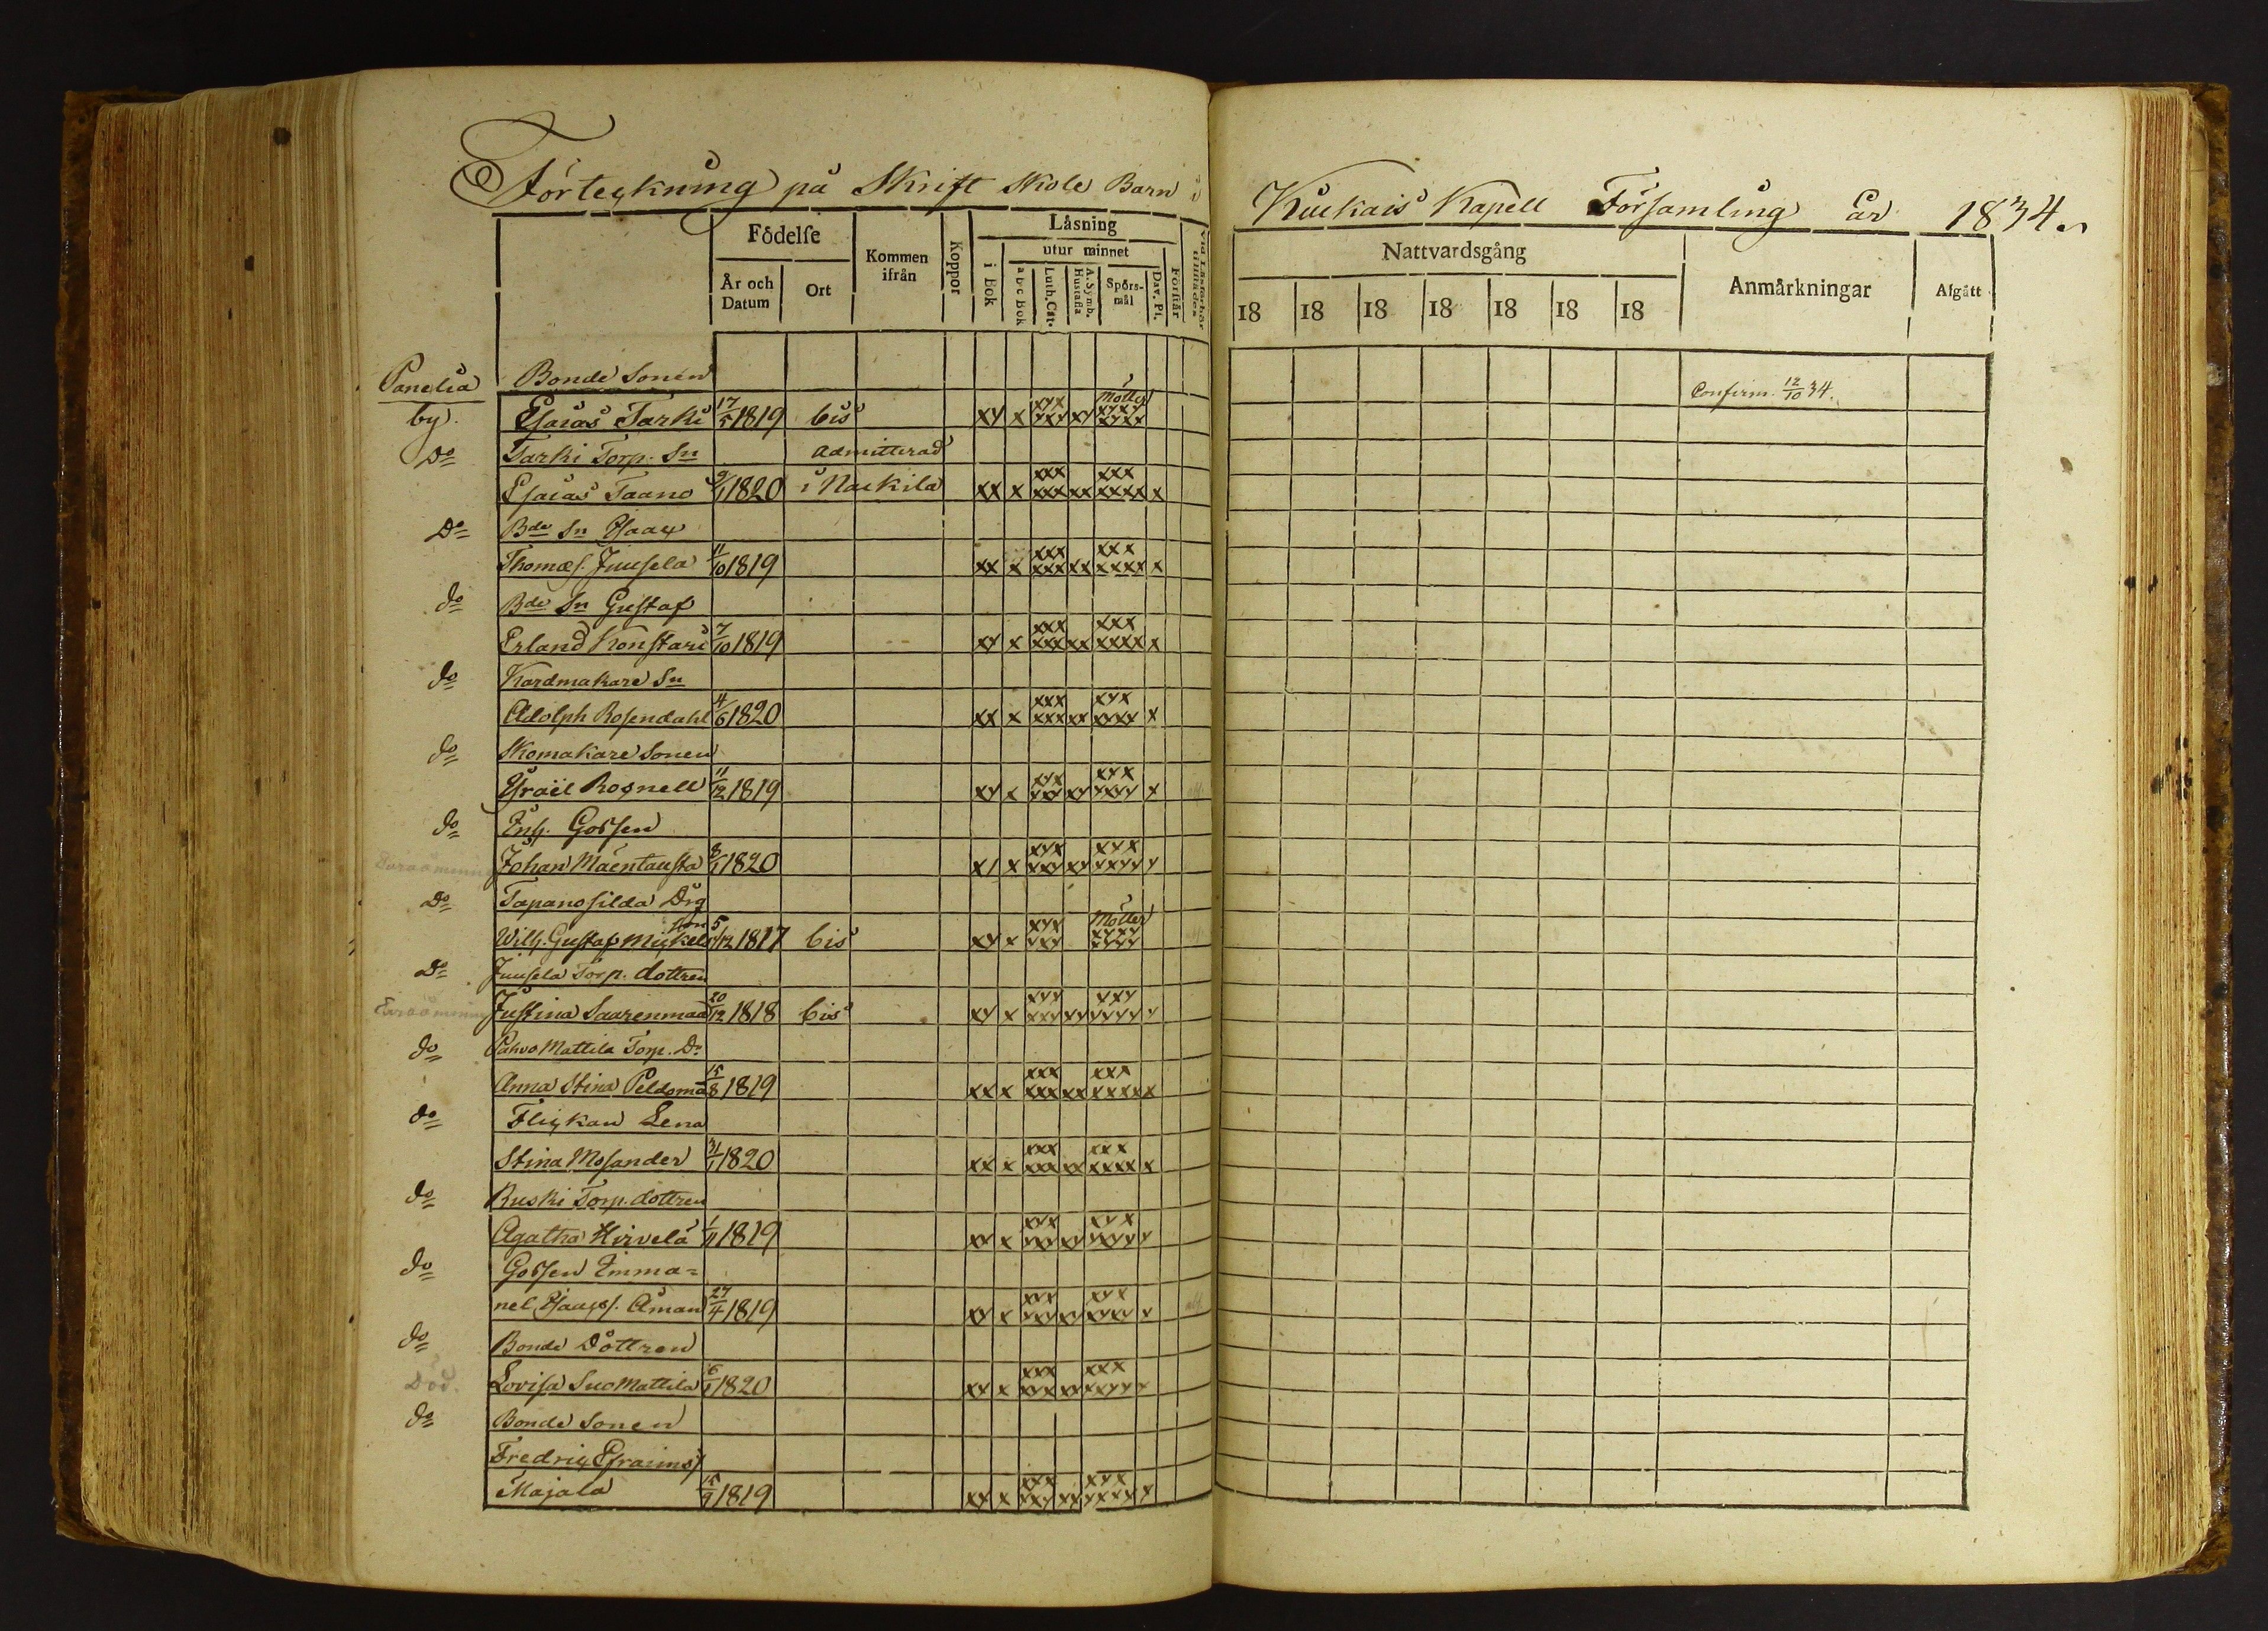 Förteckning på Skrift Skole Barn i
Kiukais Kapell Församling år 1834.
Födelse
År och Datum
Ort
Kommen ifrån
Koppor
Läsning
i Bok
utur minnet
a b c Bok
Luth. Cat.
A. Symb. Hustafla
Spörs-mål
Dav. Ps.
Förstår
Nattvardsgång
18 18 18 18 18 18 18
Anmärkningar
Afgått
Panelia Bonde Sonen
Confirm. 12/10 34.
by. Esaias Tarki 17/5 1819 bis xy x xyx xxy xy Möttes xyxy xyxx
Do Tarki Torp. Sn admitterad
Esaias Taano 9/1 1820 i Nackila xx x xxx xxx xx xxx xxxx x
Do Bde Sn Isaac
Thomæs. Juusela 11/10 1819 xx x xxx xxx xx xxx xxxx x
do Bde Sn Gustaf
Erland Konstari 7/10 1819 xy x xxx xxx xx xxx xxxx x
do Kardmakare Sn
Adolph Rosendahl 4/6 1820 xx x xxx xxx xx xyx xyxx x
do Skomakare Sonen
Israël Rognell 11/12 1819 xy x xyx xxy xy xyx xxyy x
do Enk. Gossen
Johan Mäentausta 8/1 1820 x/ x xyx xxy xy xyx xxyy y
Do Tapanosilda Drg
son
Wilh. Gustaf Mickels 5/12 1817 bis xy x xyx xxy Möttes xyxy yyyy
Do Juusela Torp. dottren
Justina Saarenmaa 20/12 1818 bis xy x xyy xxy xy yxy yyyy y
do Pahvo Mattila Torp. Dr
Anna Stina Peldoma 15/8 1819 xx x xxx xxx xx xxx xxxx x
do Flickan Lena
Stina Mosander 31/1 1820 xx x xxx xxx xx xxx xxxx x
do Ruski Torp. dottren
Agatha Hirvelä 1/11 1819 xx x xyx xxy xy xyx yxyy y
do Gossen Emma=
nel Isaacss. Åman 27/4 1819 xy x xyx xxy xy xyx xyxx x
do Bonde Dottren
Död. Lovisa Suomattila 6/1 1820 xy x xyx xyx xy xxx xxyy y
do Bonde Sonen
Fredric Efraims/
Majala 15/9 1819 xx x xxx xxy xx xyx yxxy x